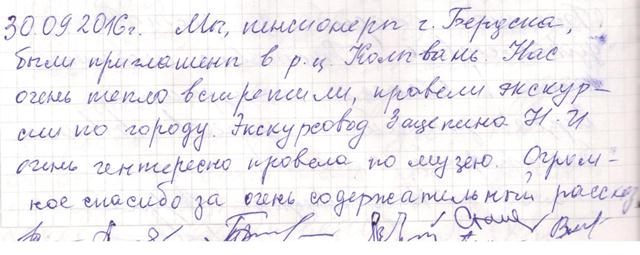 30.09.2016г. Мы, пенсионеры г. Бердска,
были приглашены в р.ц. Колывань. Нас
очень тепло встретили, провели экскур-
сии по городу. Экскурсовод Зацепина Н.И
очень интересно провела по музею. Огром-
ное спасибо за очень содержательный рассказ